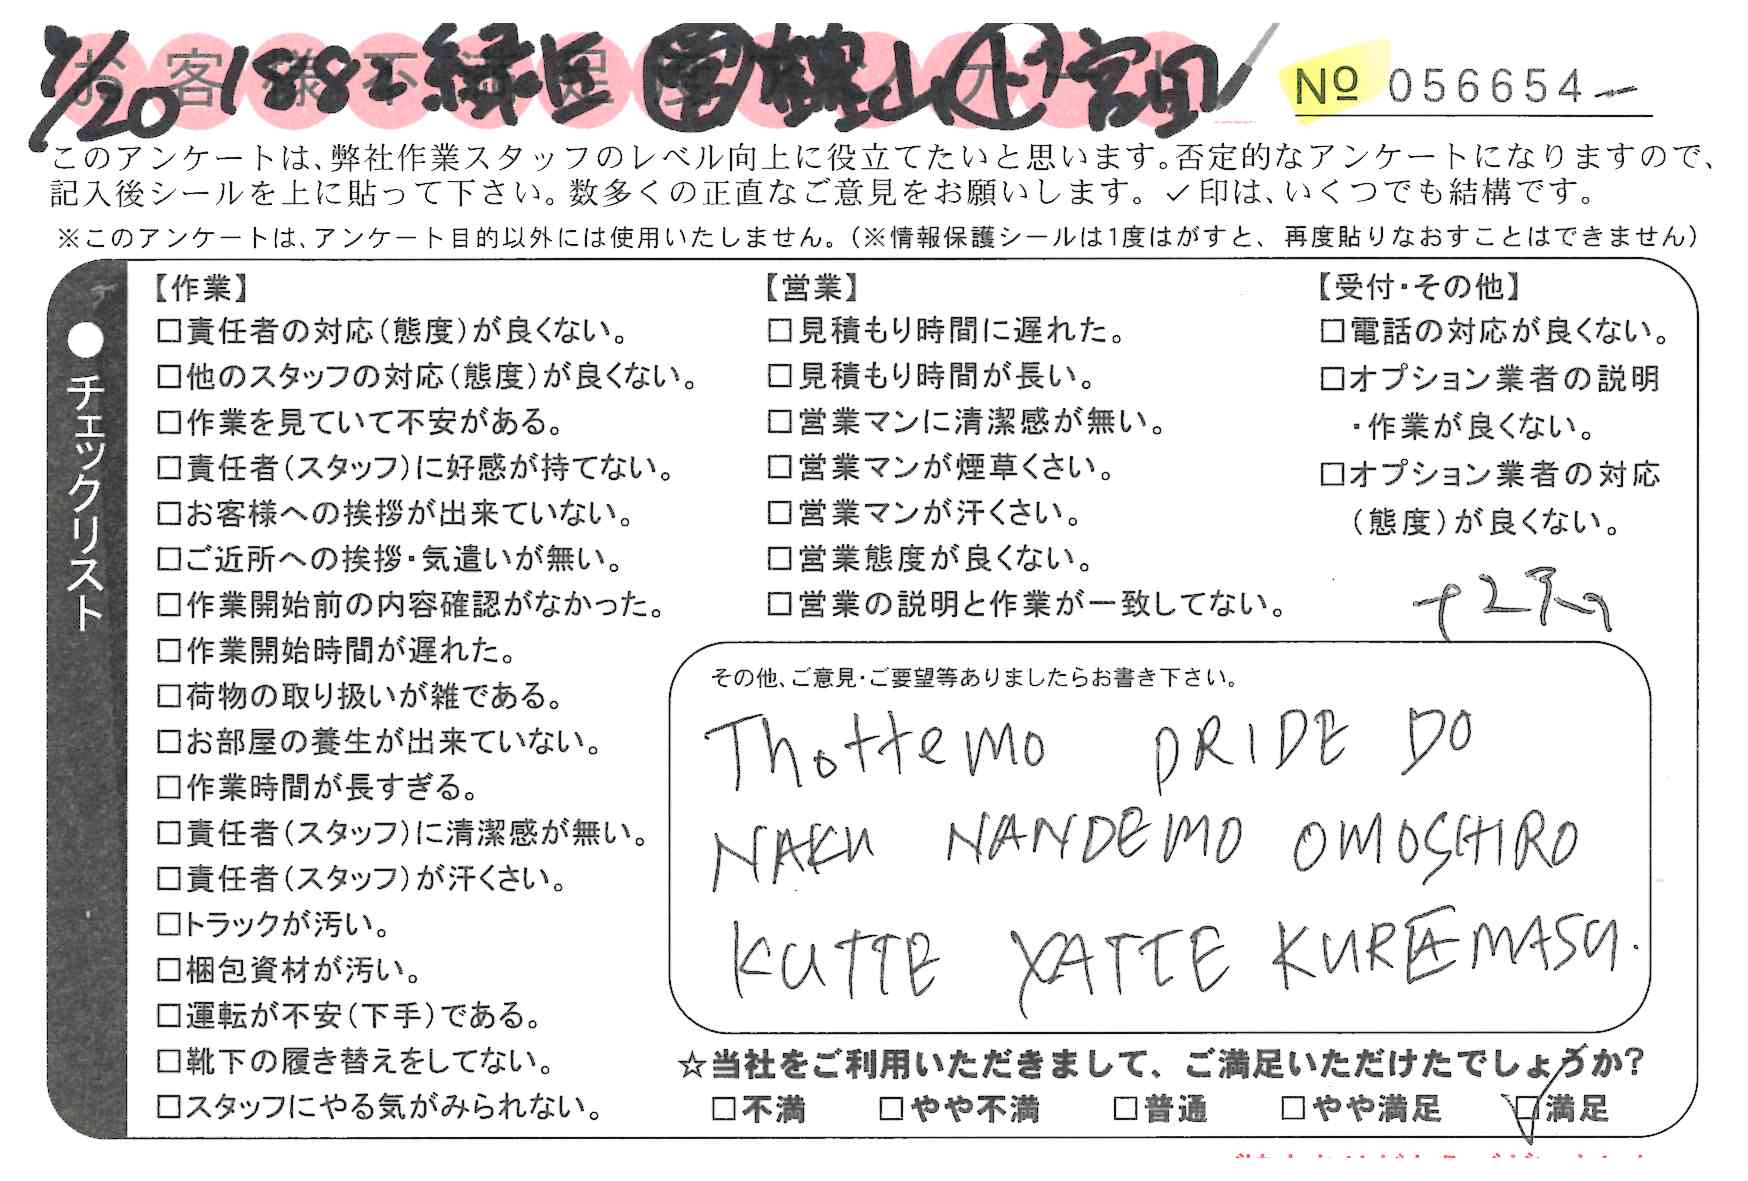 お客様不満足度アンケート
7/20 1882 緑区 営 横山 下 宮田
No 056654
このアンケートは、弊社作業スタッフのレベル向上に役立てたいと思います。否定的なアンケートになりますので、
記入後シールを上に貼って下さい。数多くの正直なご意見をお願いします。✓印は、いくつでも結構です。
※このアンケートは、アンケート目的以外には使用いたしません。(※情報保護シールは1度はがすと、再度貼りなおすことはできません)
●チェックリスト
【作業】
□責任者の対応(態度)が良くない。
□他のスタッフの対応(態度)が良くない。
□作業を見ていて不安がある。
□責任者(スタッフ)に好感が持てない。
□お客様への挨拶が出来ていない。
□ご近所への挨拶・気遣いが無い。
□作業開始前の内容確認がなかった。
□作業開始時間が遅れた。
□荷物の取り扱いが雑である。
□お部屋の養生が出来ていない。
□作業時間が長すぎる。
□責任者(スタッフ)に清潔感が無い。
□責任者(スタッフ)が汗くさい。
□トラックが汚い。
□梱包資材が汚い。
□運転が不安(下手)である。
□靴下の履き替えをしてない。
□スタッフにやる気がみられない。
【営業】
□見積もり時間に遅れた。
□見積もり時間が長い。
□営業マンに清潔感が無い。
□営業マンが煙草くさい。
□営業マンが汗くさい。
□営業態度が良くない。
□営業の説明と作業が一致してない。
【受付・その他】
□電話の対応が良くない。
□オプション業者の説明
・作業が良くない。
□オプション業者の対応
(態度)が良くない。
その他、ご意見・ご要望等ありましたらお書き下さい。
Thottemo PRIDE DO
NAKU NANDEMO OMOSHIRO
KUTTE YATTE KUREMASU.
☆当社をご利用いただきまして、ご満足いただけたでしょうか?
□不満 □やや不満 □普通 □やや満足 □満足